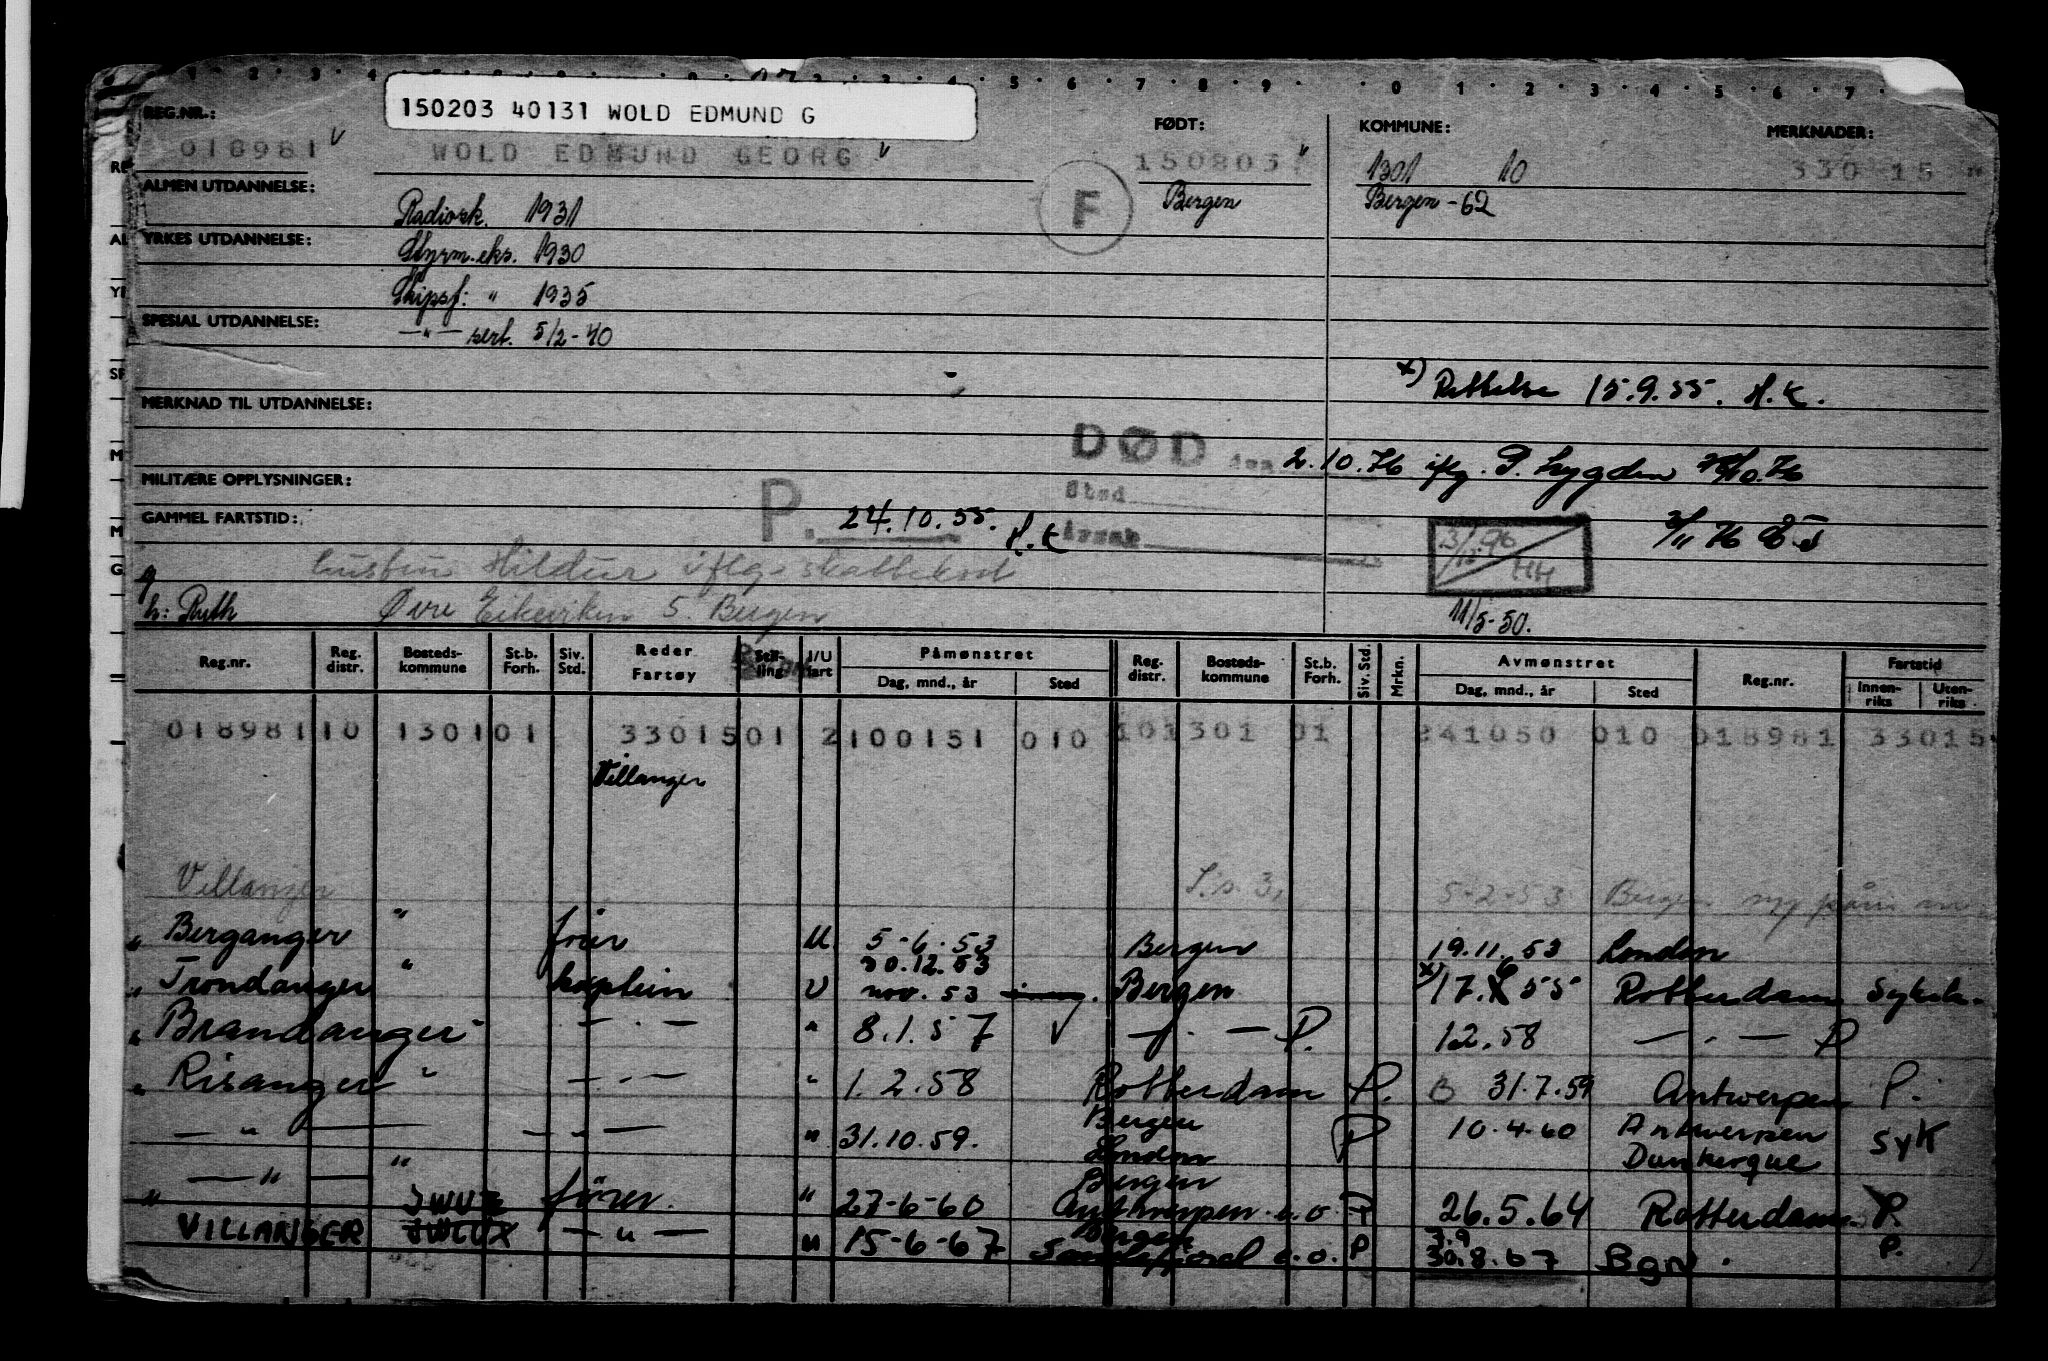 150203 40131 WOLD EDMUND G
REG.NR.: FØDT: KOMMUNE: MERKNADER:
018981 WOLD EDMUND GEORG 150803 1301 10 330 15
ALMEN UTDANNELSE: Radiosk. 1931 F Bergen Bergen - 62
YRKES UTDANNELSE: Styrm.eks. 1930
Skipsf: " 1935
SPESIAL UTDANNELSE: —"— sert. 5/2-40
x) Rettelse 15.9.55. H.K.
MERKNAD TIL UTDANNELSE:
DØD den 2.10.76 iflg. P. Lygden
MILITÆRE OPPLYSNINGER: Sted
GAMMEL FARTSTID: P. 24.10.55. H.K Årsak
HH
hustru Hildur iflg. skattekort
h: Ruth Øvre Eikeviken 5. Bergen 11/5-50.
Reg.nr. Reg. distr. Bosteds-kommune St.b. Forh. Siv. Std. Reder Fartøy Stil-ling I/U fart Påmønstret Dag, mnd., år Sted Reg. distr. Bosteds-kommune St.b. Forh. Siv. Std. Mrkn. Avmønstret Dag, mnd., år Sted Reg.nr. Fartstid Innen-riks Uten-riks
018981 10 1301 01 33015 01 2 100151 010 10 1301 01 241050 010 018981 33015
Villanger
Villanger 5-2-53 Bergen
" Berganger " fører U 5-6-53 Bergen 19.11.53 London
30.12.53
" Trondanger " kaptein U nov. 53 Bergen x) 17.6 55 Rotterdam Sykeh.
" Brandanger - — . — " 8.1.57 — . — P. 12.58 — . — P
" Risanger " — . — " 1.2.58 Rotterdam P. 31.7.59 Antwerpen P.
Bergen
— " — — " — " 31.10.59. London P 10.4.60 Antwerpen Syk
Dunkerque
— " — " Bergen
" JWUX fører. " 27-6-60 Antwerpen a.o. P 26.5.64 Rotterdam P.
Bergen 3.9
VILLANGER — " — " 15-6-67 a.o. P 30.8.67 Bgn. P.